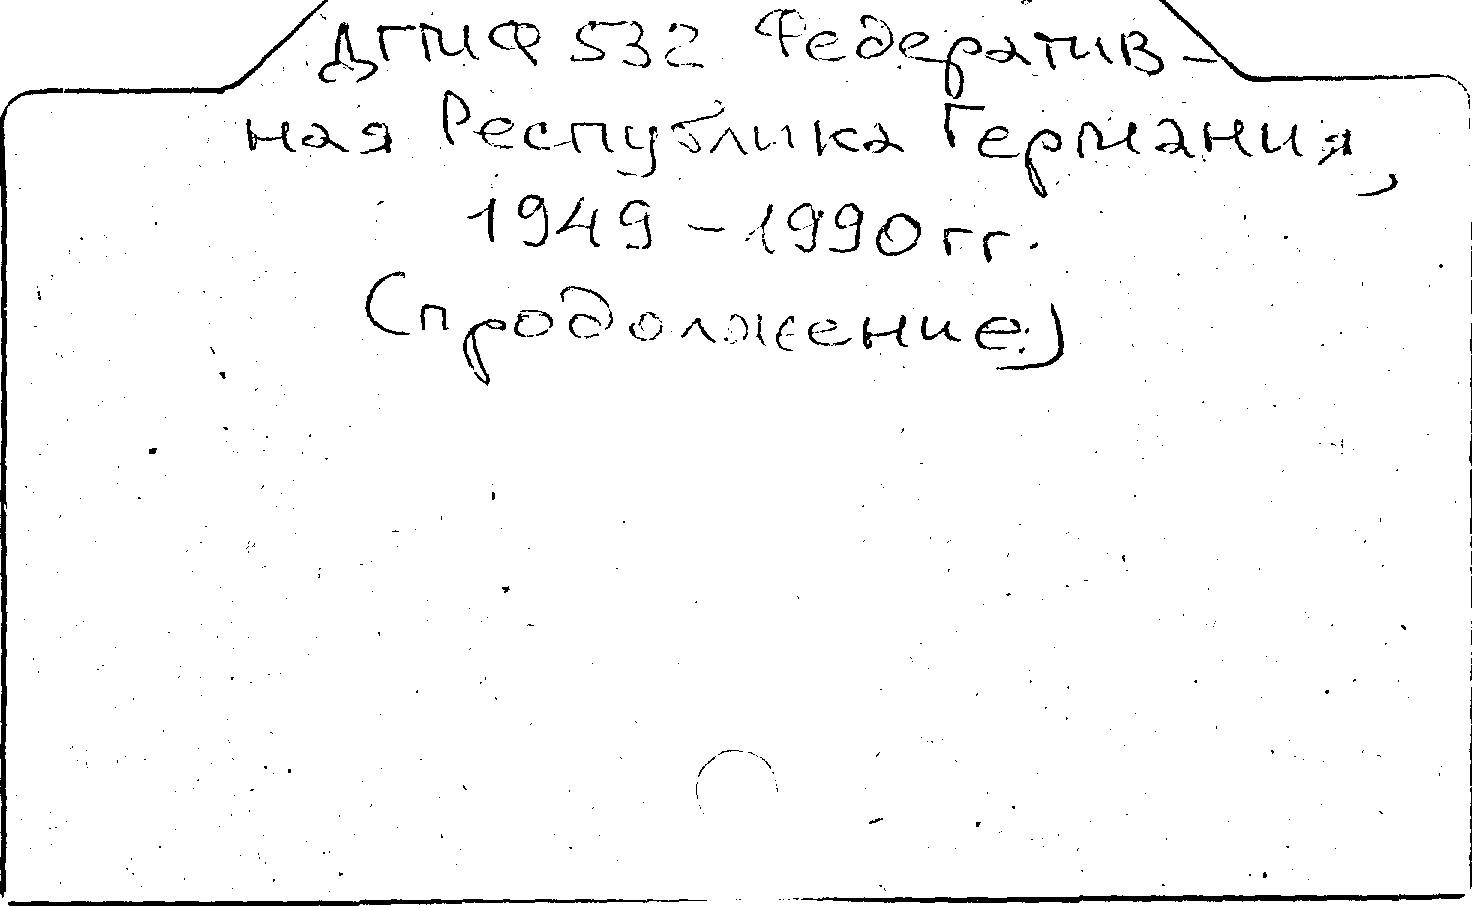 ДГПИФ 532 Федератив-
ная Республика Германия,
1949 - 1990 гг.
(продолжение)